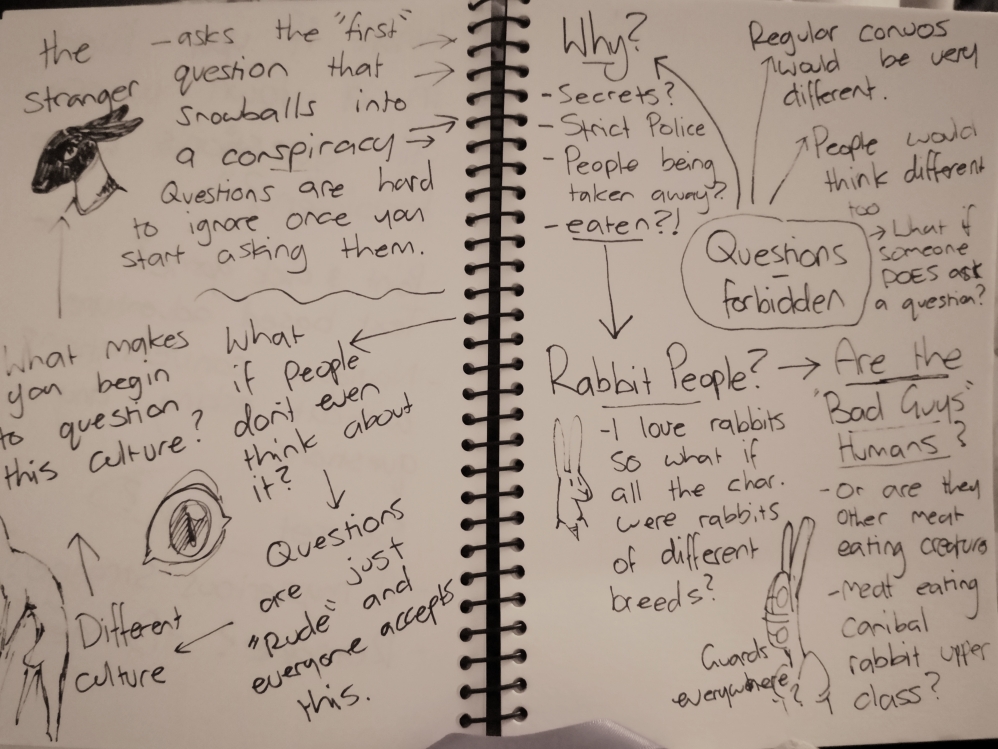 the
Stranger
- asks the "first"
question that
snowballs into
a conspiracy
Questions are hard
to ignore once you
start asking them.
What makes
you begin
to question
this culture?
What
if People
don't even
think about
it?
Questions
are just
"Rude" and
everyone accepts
this.
Different
culture
Why?
- Secrets?
- Strict Police
- People being
taken away?
- eaten?!
Regular convos
would be very
different.
People would
think different
too
Questions
forbidden
What if
someone
DOES ask
a question?
Rabbit People?
- I love rabbits
so what if
all the char.
were rabbits
of different
breeds?
Are the
"Bad Guys"
Humans?
- Or are they
other meat
eating creature
- Meat eating
canibal
rabbit upper
class?
Guards
everywhere